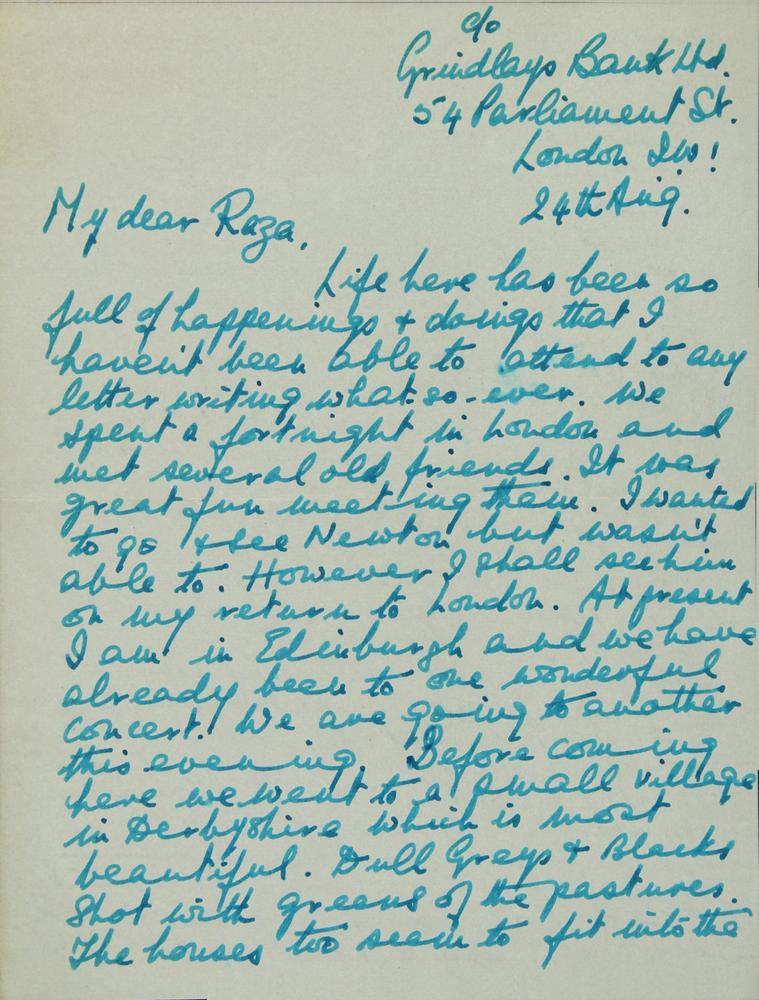 c/o
Grindlays Bank Ltd.
54 Parliament St.
London S.W!
24th Aug.
My dear Raza,
Life here has been so
full of happenings & doings that I
haven't been able to attend to any
letter writing what-so-ever. We
spent a fortnight in London and
met several old friends. It was
great fun meeting them. I wanted
to go & see Newton but wasn't
able to. However I shall see him
on my return to London. At present
I am in Edinburgh and we have
already been to one wonderful
concert. We are going to another
this evening. Before coming
here we went to a small village
in Derbyshire which is most
beautiful. Dull Greys & Blacks
shot with greens of the pastures.
The houses too seem to fit into the